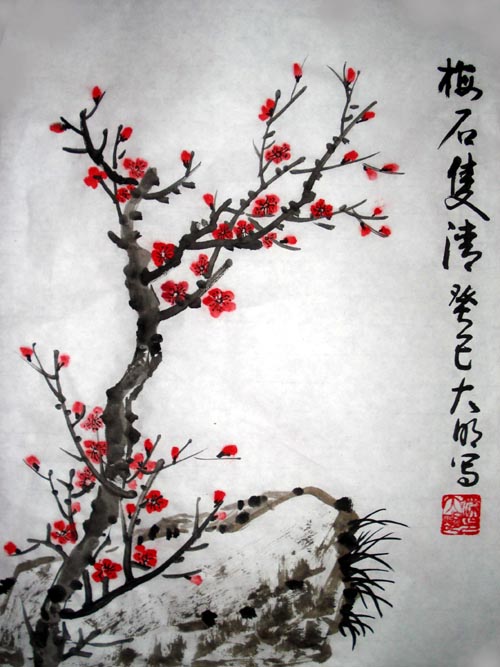 梅石隻清癸巳大明写